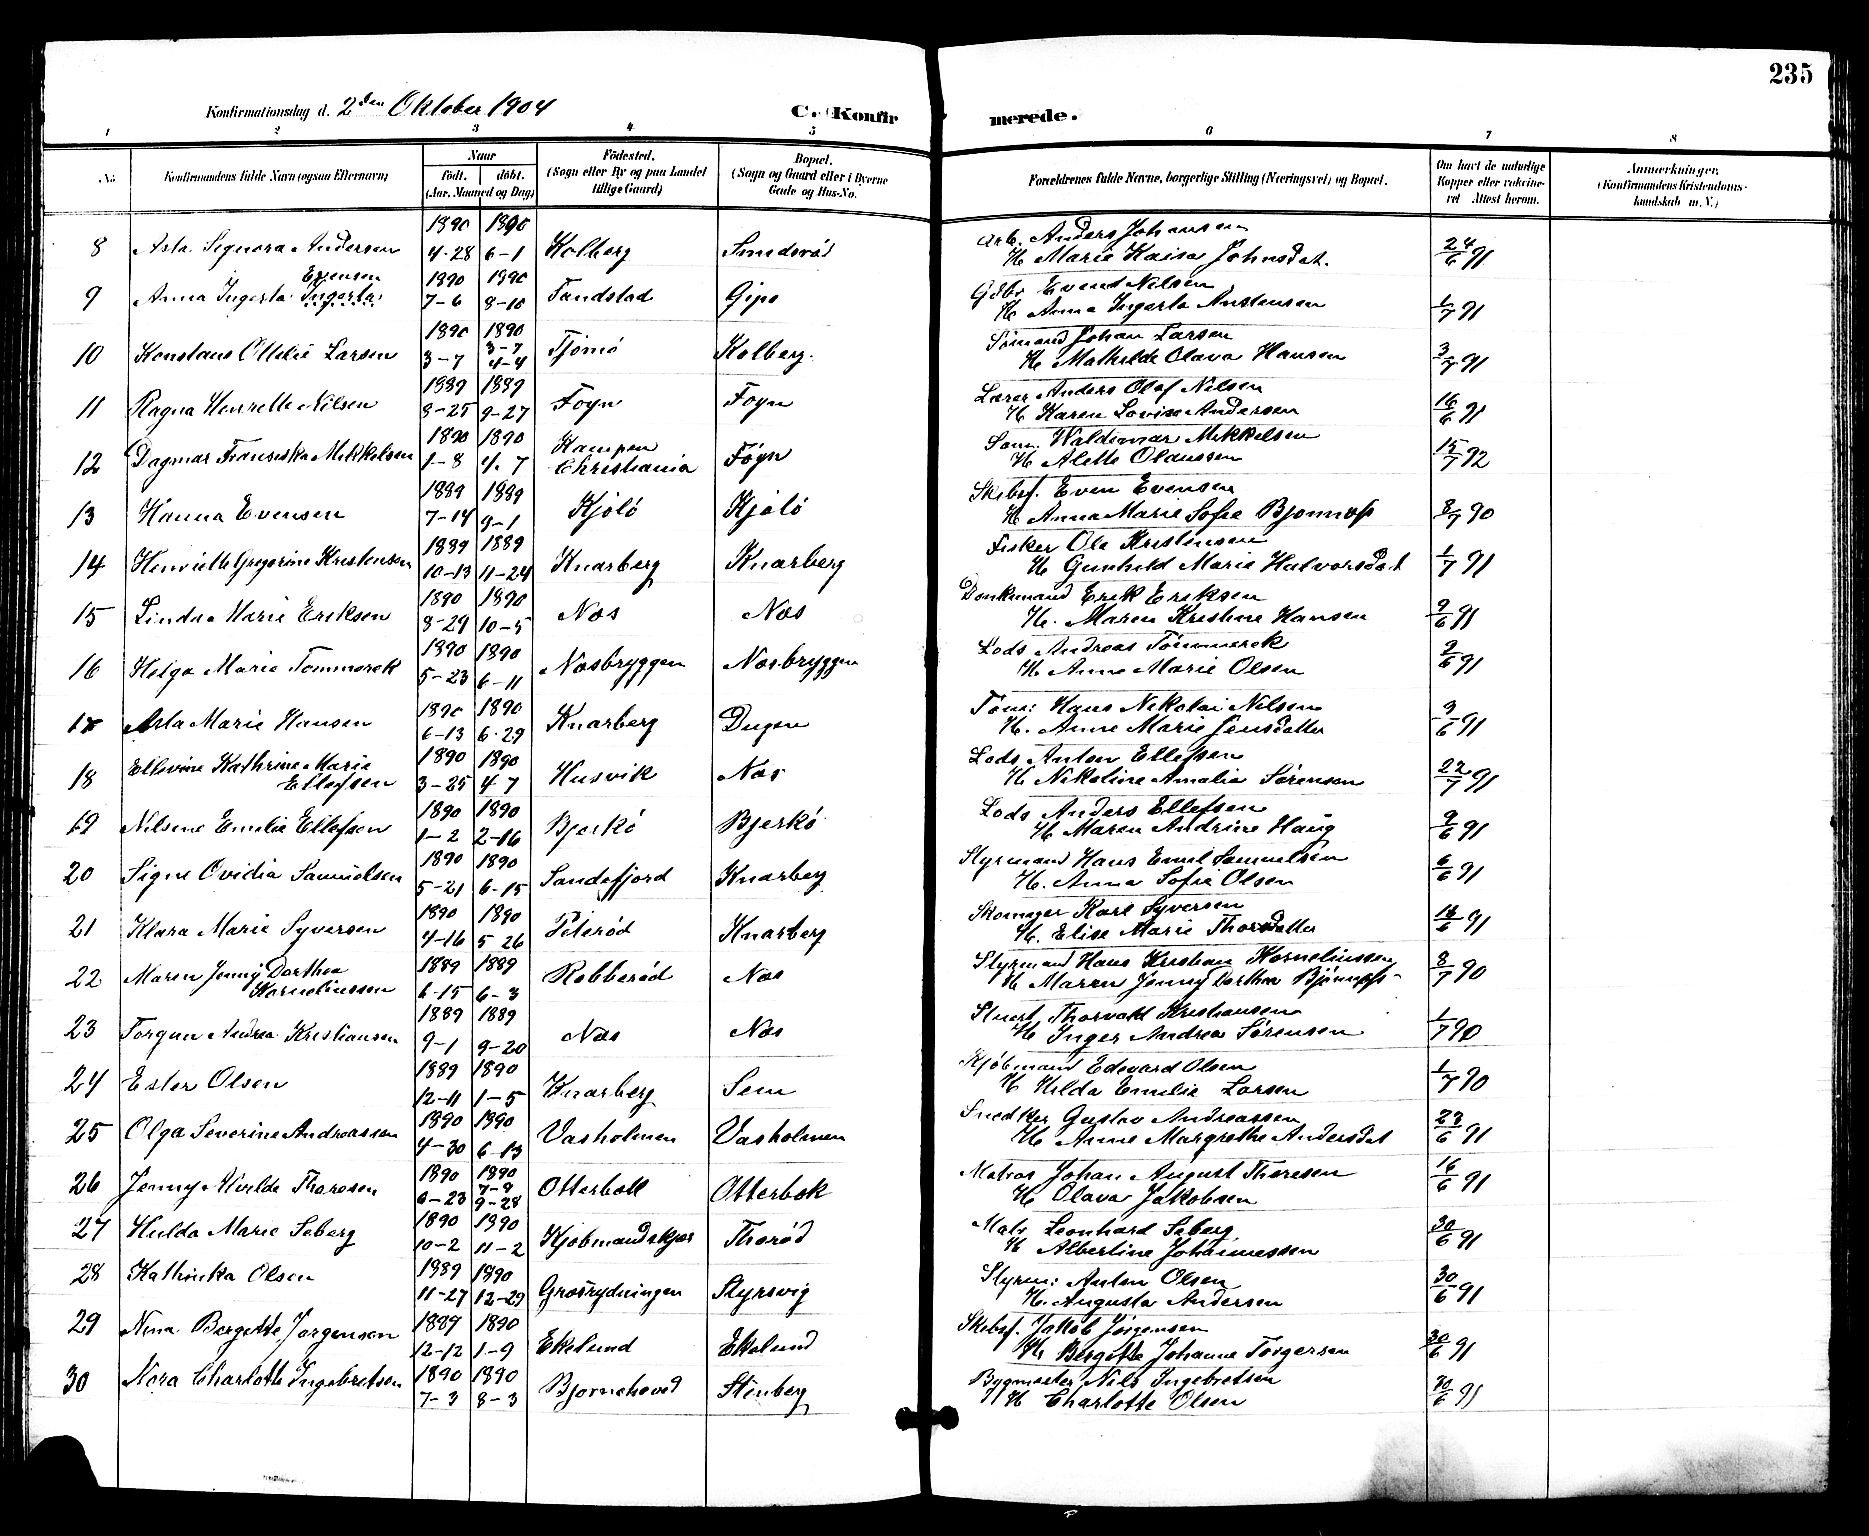 235
Konfirmationsdag d. 2den Oktober 1904
C. Konfirmerede.
1 2 3 4 5 6 7 8
No
Konfirmandens fulde Navn (ogsaa Efternavn)
Naar
født. døbt.
(Aar. Maaned og Dag)
Födested.
(Sogn eller By og paa Landet
tillige Gaard)
Bopæl.
(Sogn og Gaard eller i Byerne
Gade og Hus-No.
Forældrenes fulde Navne, borgerlige Stilling (Næringsvei) og Bopæl.
Om havt de naturlige
Kopper eller vakcine-
ret Attest herom.
Anmærkninger.
(Konfirmandens Kristendoms-
kundskab m. V.)
8 Asta Signora Andersen 1890 4-28 1890 6-1 Kolberg Smidsrød
Arb. Anders Johansen
H. Marie Kaisa Johnsdat. 24/6 91
9 Anna Ingerta Evensen 1890 7-6 1890 8-10 Tandstad Gipø
Gdbr Evend Nilsen
H. Anna Ingerta Anstensen 1/7 91
10 Konstanse Ottilie Larsen 1890 3-7 1890 3-7 4-4 Tjömö Kolberg.
Sömand Johan Larsen
H. Mathilde Olava Hansen 3/7 91
11 Ragna Henrette Nilsen 1889 8-25 1889 9-27 Föyn Föyn
Lærer Anders Olaf Nilsen
H. Karen Lovise Andersen 16/6 91
12 Dagmar Fransiska Mikkelsen 1890 1-8 1890 4-7 Kampen Christiania Föyn
Söm. Waldimar Mikkelsen
H. Alette Olaussen 15/7 92
13 Hanna Evensen 1889 7-14 1889 9-1 Kjölö Kjölö
Skibsf. Even Evensen
H. Anna Marie Sofie Bjønnæss 8/7 90
14 Henriette Gregorine Kristensen 1889 10-13 1889 11-24 Knarberg Knarberg
Fisker Ole Kristensen
H. Gunhild Marie Halvorsdat 1/7 91
15 Linda Marie Eriksen 1890 8-29 1890 10-5 Næs Næs
Donkemand Erik Eriksen
H. Maren Kristine Hansen 9/6 91
16 Helga Marie Tömmerek 1890 5-23 1890 6-11 Næsbryggen Næsbryggen
Lods Andreas Tömmerek
H. Anne Marie Olsen 9/6 91
17 Asta Marie Hansen 1890 6-13 1890 6-29 Knarberg Dugen
Töm: Hans Nikolai Nilsen
H. Anne Marie Jensdatter 9/6 91
18 Ellevine Kathrine Marie
Ellefsen 1890 3-25 1890 4 7 Husvik Næs
Lods Anton Ellefsen
H. Nikoline Amalia Sørensen 22/7 91
19 Nilsine Emilie Ellefsen 1890 1-2 1890 2-16 Bjerkö Bjerkö
Lods Anders Ellefsen
H. Maren Andrine Haug 9/6 91
20 Signe Ovidia Samuelsen 1890 5-21 1890 6-15 Sandefjord Knarberg
Styrmand Hans Emil Samuelsen
H. Anna Sofie Olsen 6/6 91
21 Klara Marie Syversen 1890 4-16 1890 5 26 Peterød Knarberg
Skomager Karl Syversen
H. Elise Marie Thorsdatter 91
22 Maren Jenny Dorthea
Korneliussen 1889 6-15 1889 6-3 Robberød Næs
Styrmand Hans Kristian Korneliussen
H. Maren Jenny Dorthea Bjönness 8/7 90
23 Torgun Andrea Kristiansen 1889 9-1 1889 9-20 Næs Næs
Stuert Thorvald Kristiansen
H. Inger Andrea Sörensen 1/7 90
24 Ester Olsen 1889 12-11 1890 1-5 Knarberg Sem
Kjøbmand Edevard Olsen
H Hilda Emilie Larsen 1/7 90
25 Olga Severine Andreassen 1890 4-30 1890 6-13 Vasholmen Vasholmen
Snedker Gustav Andreassen
H. Anne Margrethe Andersdat 23/6 91
26 Jenny Alvilda Thoresen 1890 6-23 1890 7-9 9-28 Otterbæk Otterbæk
Matros Johan August Thoresen
H Olava Jakobsen 16/6 91
27 Hulda Marie Seberg 1890 10-2 1890 11-2 Kjøbmandskjær Thorød
Matr Leonhard Seberg
H Albertine Johannessen 30/6 91
28 Kathinka Olsen 1889 11-27 1890 12-29 Grøsrydningen Styrsvig
Styrm: Anton Olsen
H. Augusta Andersen 30/6 91
29 Nina Bergette Jørgensen 1889 12-12 1890 1-9 Ekelund Ekelund
Skibsf. Jakob Jörgensen
H. Bergitte Johanne Torgersen 30/6 91
30 Nora Charlotte Ingebretsen 1890 7-3 1890 8-3 Bjørnehoved Stenberg
Bygmester Nils Ingebretsen
H Charlotte Olsen 30/6 91